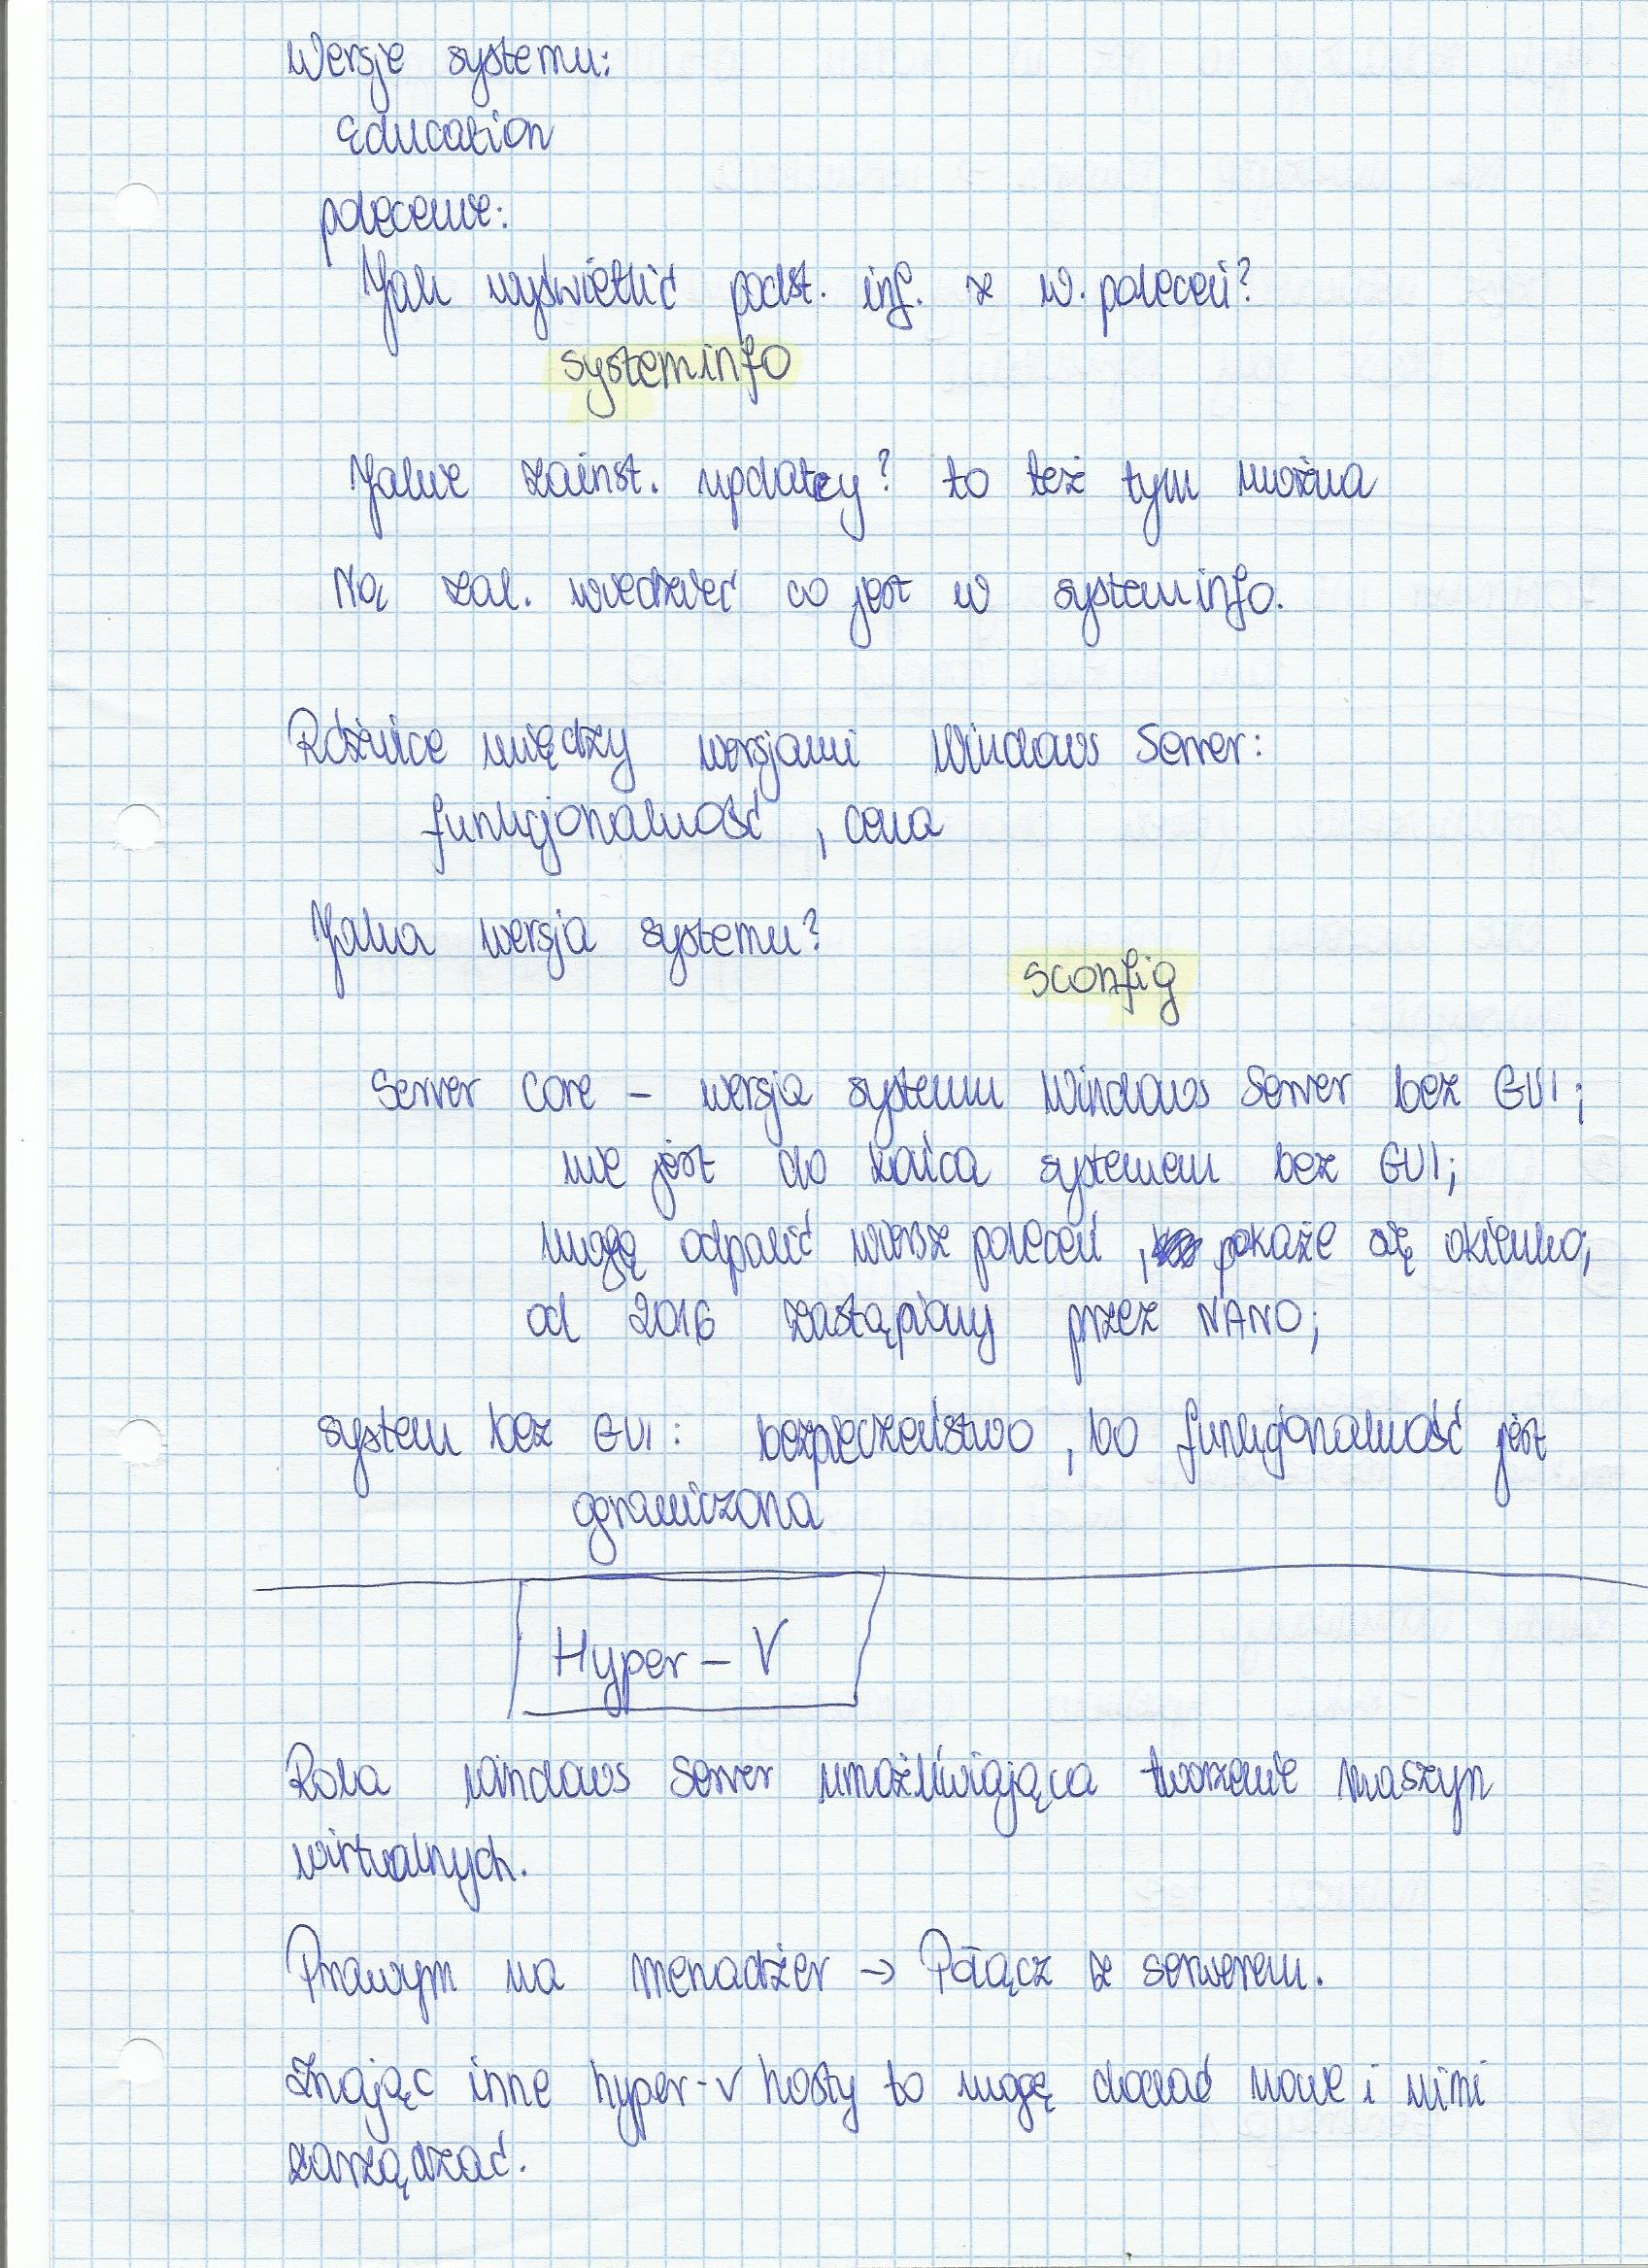 Wersje systemu:
Education
polecenie:
Jak wyświetlić podst. inf. z w. poleceń?
systeminfo
Jakie zainst. updatey? to też tym można
Na zal. wiedzieć co jest w systeminfo.
Różnice między wersjami Windows Server:
funkcjonalność, cena
Jaka wersja systemu?
sconfig
Server Core – wersja systemu Windows Server bez GUI;
nie jest do końca systemem bez GUI;
mogę odpalić wiersz poleceń, pokaże się okienko;
od 2016 zastąpiony przez NANO;
system bez GUI: bezpieczeństwo, bo funkcjonalność jest
ograniczona
Hyper-V
Rola Windows Server umożliwiająca tworzenie maszyn
wirtualnych.
Prawym na menadżer → Połącz z serwerem.
Znając inne hyper-v hosty to mogę dodać nowe i nimi
zarządzać.